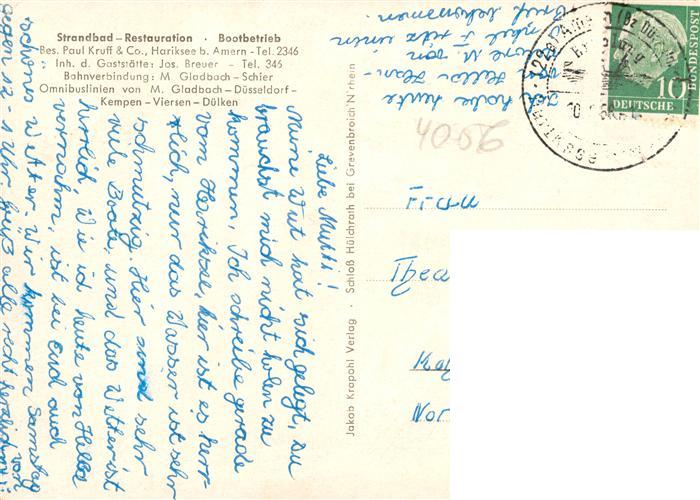 Strandbad–Restauration · Bootbetrieb
Bes. Paul Kruff & Co., Hariksee b. Amern - Tel. 2346
Inh. d. Gaststätte: Jos. Breuer - Tel. 346
Bahnverbindung: M. Gladbach – Schier
Omnibuslinien von M. Gladbach–Düsseldorf–
Kempen–Viersen–Dülken
Liebe Mutti!
Meine Wut hat sich gelegt, du
brauchst mich nicht holen zu
kommen. Ich schreibe gerade
vom Hariksee, hier ist es herr-
lich, nur das Wasser ist sehr
schmutzig. Hier sind sehr
viele Boote, und das Wetter ist
herrlich, Wie ich heute von Hella
vernahm, ist bei Euch auch
schönes Wetter. Wir kommen Samstag
gegen 12-1 Uhr. Grüß alle recht herzlich
von
Ich habe heute
von Hella Han-
ne M. von
und Fritz einen
Brief bekommen.
Jakob Krapohl Verlag · Schloß Hülchrath bei Grevenbroich N'rhein
4056
10
DEUTSCHE
BUNDESPOST
Hariksee
Frau
Thea
Nor